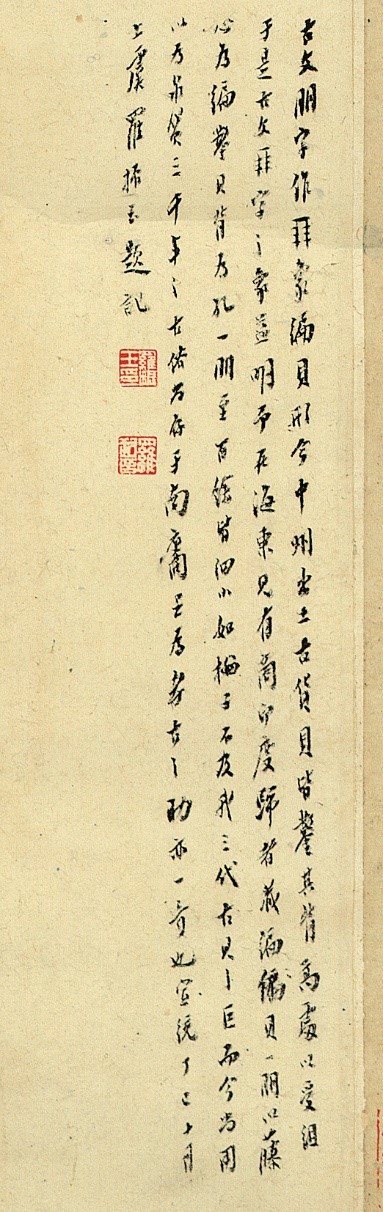 古文朋字作拜象編貝形今中州出土古貨貝皆鑿其背高處以受組
于是古文拜字之象益明予在海東見有商印度歸者藏編備貝一朋以藤
心為編鑿貝背為孔一朋至百餘皆細小如梅子不及我三代古貝之巨而今尚用
以為泉貨三千年之古俗尚存于南裔足為考古之助亦一奇也宣統丁巳十月
上虞羅振玉題記